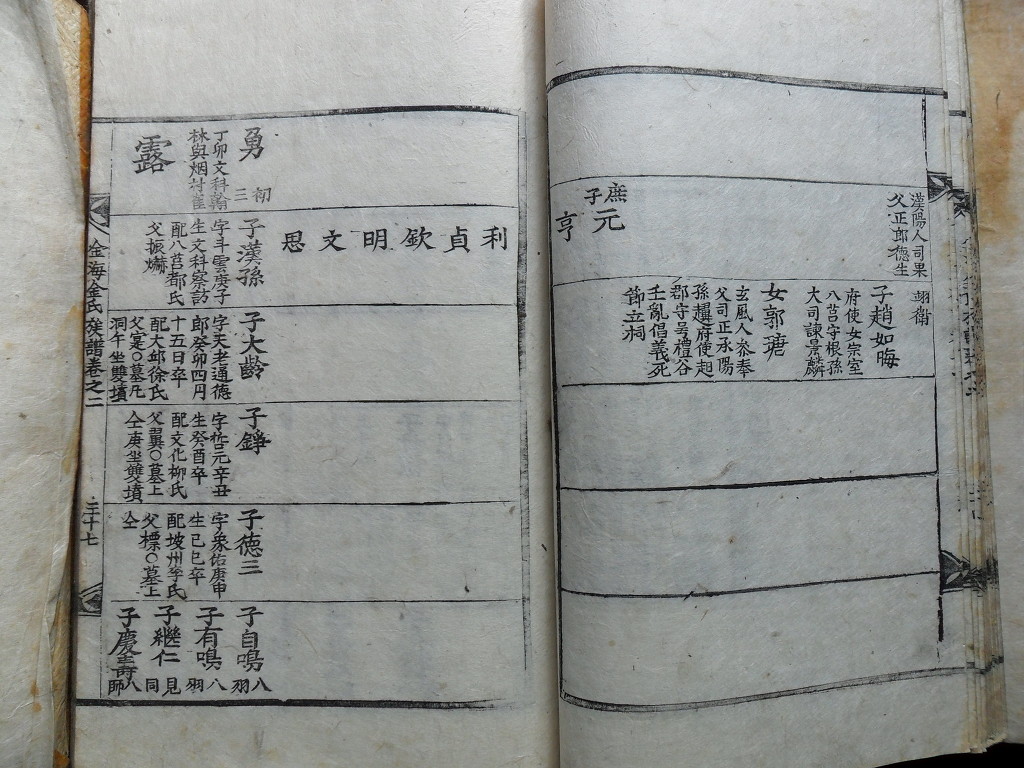 漢陽人司果
父正郎德生
庶子
元
亨
翊衛
子趙如晦
府使女宗室
八莒守根孫
大司諫景麟
女郭䟽
玄風人參奉
父司正承陽
孫趪府使起
郡守号禮谷
壬亂倡義死
節立祠
利貞欽明文思
勇
初三
丁卯文科翰
林與烟村崔
露
子漢孫
字斗雲庚子
生文科察訪
配八莒都氏
父振
子大齡
字天老通德
郎癸卯四月
十五日卒
配大邱徐氏
父寔○墓凡
洞午坐雙墳
子錚
字哲元辛丑
生癸酉卒
配文化柳氏
父翼○墓上
仝庚坐雙墳
子德三
字象佑庚申
生己巳卒
配坡州李氏
父標○墓上
仝
子自鳴 八羽
子有鳴 八羽
子繼仁 見同
子慶壽 八師
金海金氏族譜卷之二
三十七